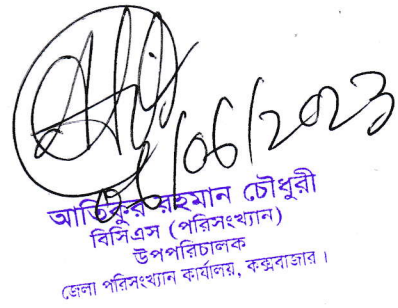 /06/2023
আতিকুর রহমান চৌধুরী
বিসিএস (পরিসংখ্যান)
উপপরিচালক
জেলা পরিসংখ্যান কার্যালয়, কক্সবাজার।